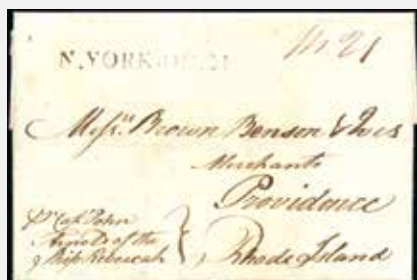 N.YORK
21
Messrs. Brown Benson & Ives
Merchants
Providence
Rhode Island
Capt. John
of the
Ship Rebecah